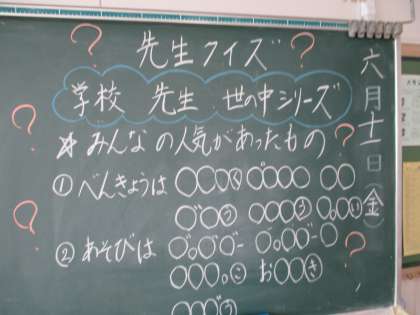 先生クイズ
学校 先生 世の中シリーズ
☆みんなの人気があったもの
①べんきょうは ○○○く ○○○○ ○○
○○う ○○○う ○○○い
②あそびは
○○○。に お○○き
○○○う
六月十一日(金)